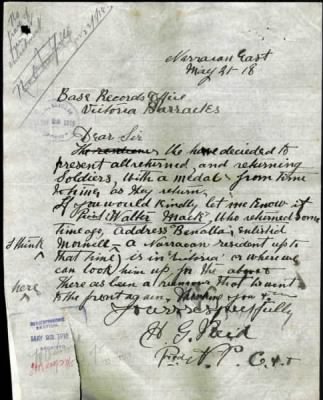 Narracan East
May 21-18
Base Records Office
Victoria Barracks
Dear Sir
We have decided to
present all returned, and returning
Soldiers, with a medal from time
to time as they return,
If you would kindly, let me know if
Walter Mack, who returned some
time ago, address Benalla, enlisted
a Narracan resident up to
I think that time) is in Victoria or where we
can look him up, for the above
There as been a rumour that he went
here to the front again, Thanking you &
Yours respectfully
H G Reid
MAY 23 1918